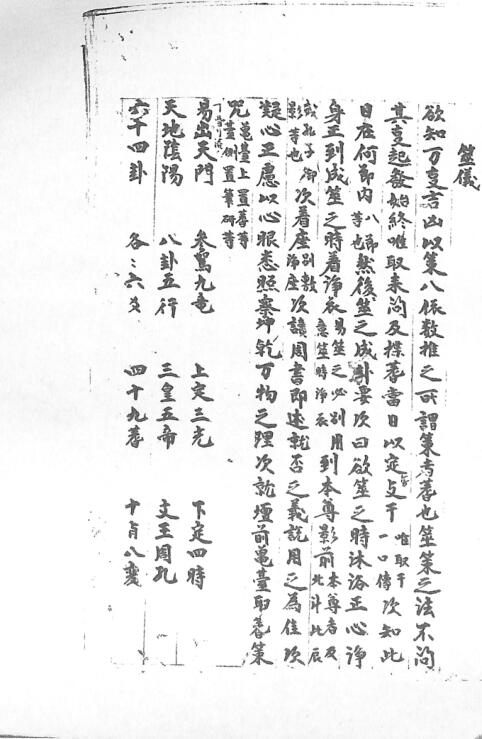 筮儀
欲知万変吉凶以策八依数推之可謂策者蓍也筮策之法不問
其変起發始終唯取来問及揲蓍當日以定支干唯取干一口傳次知此
日在何節内八節等也然後筮之成卦要次曰欲筮之時沐浴正心淨
身正到成筮之時着淨衣易筮之必別用意筮時淨衣到本尊影前本尊者及北斗北辰
或孔子御影等也次着座別敷淨座次讀周書即述就否之義説用之為佳次
疑心正慮以心眼悉照察坤乾万物之理次就壇前亀臺取蓍策
咒亀臺上置蓍等蓋側置筆研等
易出天門 参駕九竜 上定三光 下定四時
天地陰陽 八卦五行 三皇五帝 文王周孔
六十四卦 各〻六爻 四十九蓍 十有八変